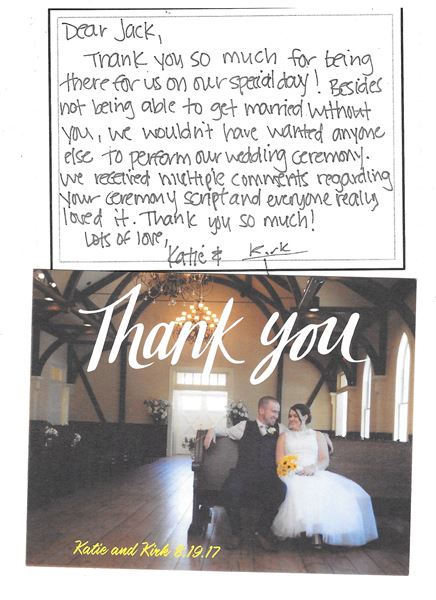 Dear Jack,
Thank you so much for being
there for us on our special day! Besides
not being able to get married without
you, we wouldn't have wanted anyone
else to perform our wedding ceremony.
We received multiple comments regarding
your ceremony script and everyone really
loved it. Thank you so much!
Lots of love,
Katie & Kirk
Thank you
Katie and Kirk 8.19.17